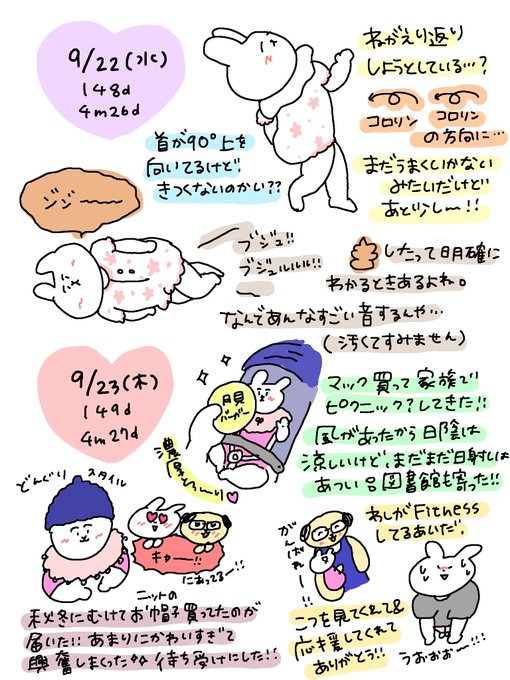 9/22(水)
148d
4m26d
ねがえり返り
しようとしている…?
コロリン
コロリン
の方向に…
首が90°上を
向いてるけど
きつくないのかい??
まだうまくいかない
みたいだけど
あと少しー!!
ンジ〜〜
ブジュ!!
ブジュルルル!!
したって明確に
わかるときあるよね。
なんであんなすごい音するんや…
(汚くてすみません)
9/23(木)
149d
4m27d
月見
バーガー
濃厚ひぃーぃ
マック買って家族で
ピクニック?してきた!!
風があったから日陰は
涼しいけど、まだまだ日射しは
あつい 図書館も寄った!!
どんぐり
スタイル
キャー!!
にあってるー!!
ニットの
秋冬にむけてお帽子買ってたのが
届いた!!あまりにかわいすぎて
興奮しまくった 待ち受けにした!!
わしがFitness
してるあいだ、
がんばれー!!
こつを見てくれて&
応援してくれて
ありがとう!!
うおおおー…!!